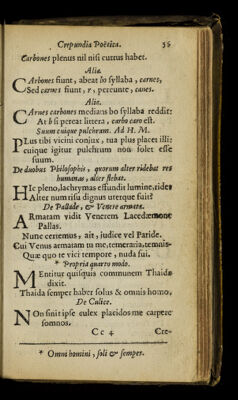 Crepundia Poëtica. 56
Carbones plenus nil nisi currus habet.
Aliæ.
CArbones fiunt, abeat bo syllaba, carnes,
Sed carnes fiunt, r, pereunte, canes.
Aliæ.
CArnes carbones medians bo syllaba reddit:
At b si pereat littera, carbo caro est.
Suum cuique pulchrum. Ad H. M.
PLus tibi vicini conjux, tua plus placet illi:
cuique igitur pulchrum non solet esse
suum.
De duobus Philosophis, quorum alter ridebat res
humanas, alter flebat.
HIc pleno, lachrymas effundit lumine, rides
Alter num risu dignus uterque fuit?
De Pallade, & Venere armata.
ARmatam vidit Venerem Lacedæmone
Pallas.
Nunc certemus, ait, judice vel Paride.
Cui Venus armatam tu me, temeraria, temnis
Quæ quo te vici tempore, nuda fui.
* Propria quarto modo.
MEntitur quisquis communem Thaida
dixit.
Thaida semper habet solus & omnis homo,
De Culice.
NOn sinit ipse culex placidos me carpere
somnos,
Cc 4 Cre-
* Omni homini, soli & semper.